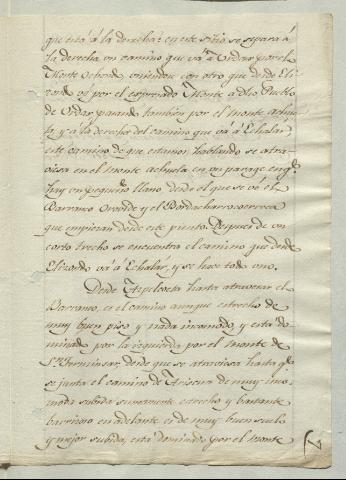 que está á la derecha: en este sitio se separa á
la derecha un camino que vá á Urdax por el
Monte Ochondo, uniendose con otro que desde Eli
zondo vá por el expresado Monte á dho Pueblo
de Urdax, pasando también por el monte Achue
la, y á la derecha del camino que vá á Echalar,
este camino de que estamos hablando se atra-
viesa en el monte Achuela en un parage en q.e
hay un pequeño llano, desde el que se vé el
Barranco Oronde y el
que empiezan desde este punto. Despues de un
corto trecho se encuentra el camino que desde
Elizondo vá á Echalár, y se hace todo uno.
Desde Azpilcueta hasta atravesar el
Barranco, es el camino aunque estrecho de
muy buen piso y nada incomodo, y está do-
minado por la izquierda por el monte de
desde que se atraviesa hasta q.e
se junta el camino de Arizcun de muy inco
moda subida sumamente estrecho y bastante
barrioso en adelante es de muy buen suelo
y mejor subida, está dominado por el monte